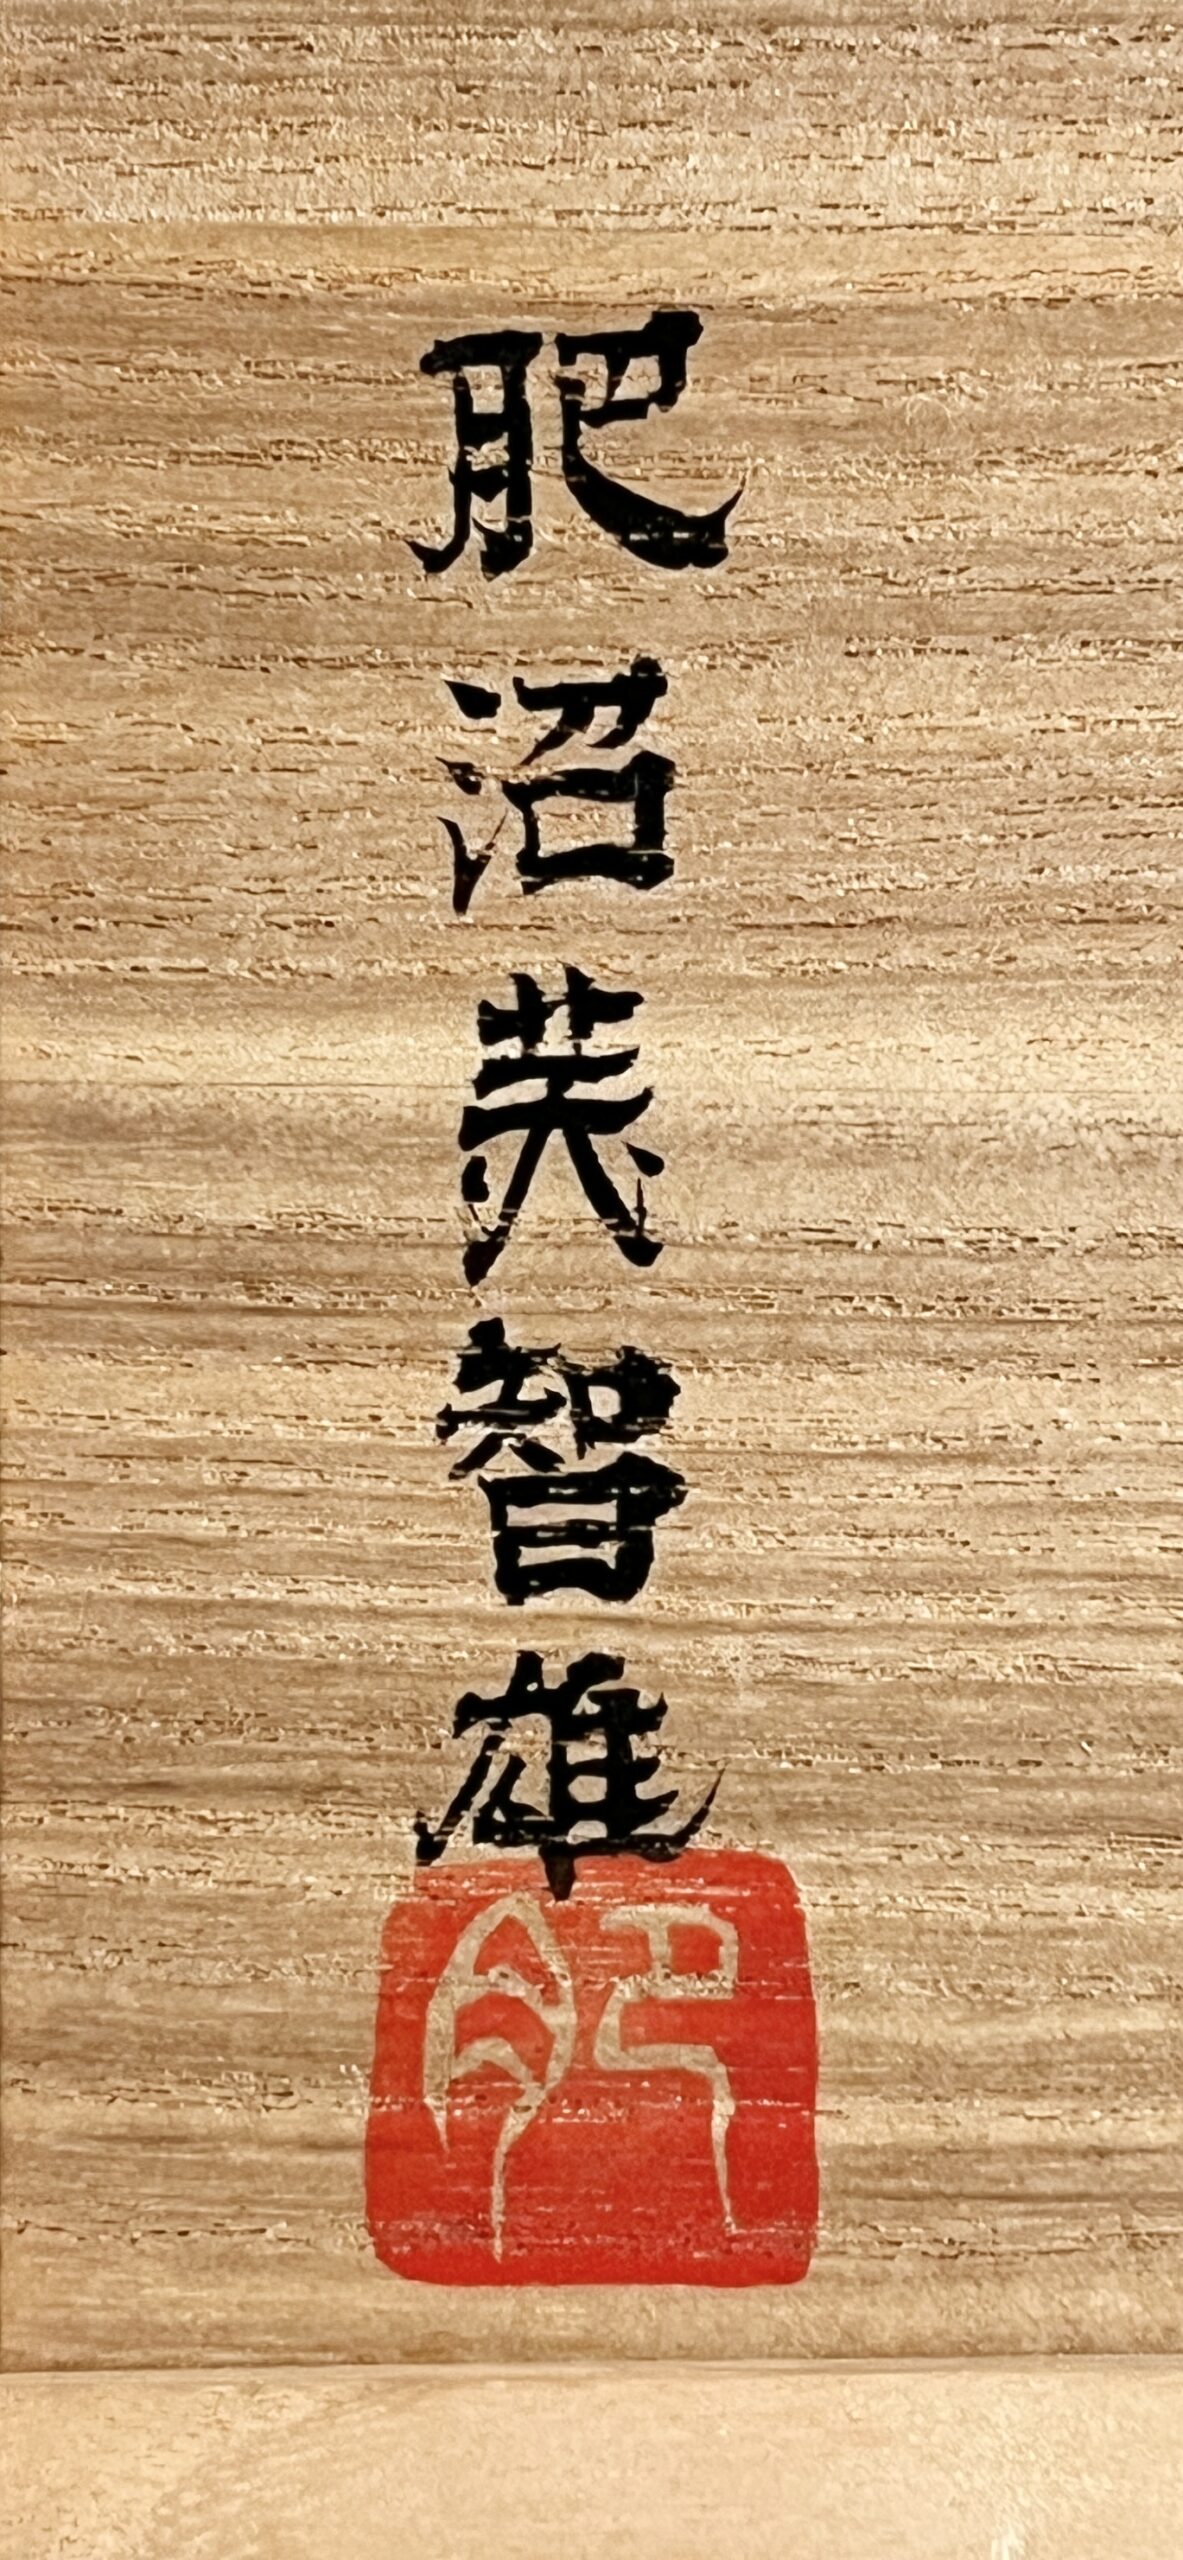 肥沼美智雄
肥